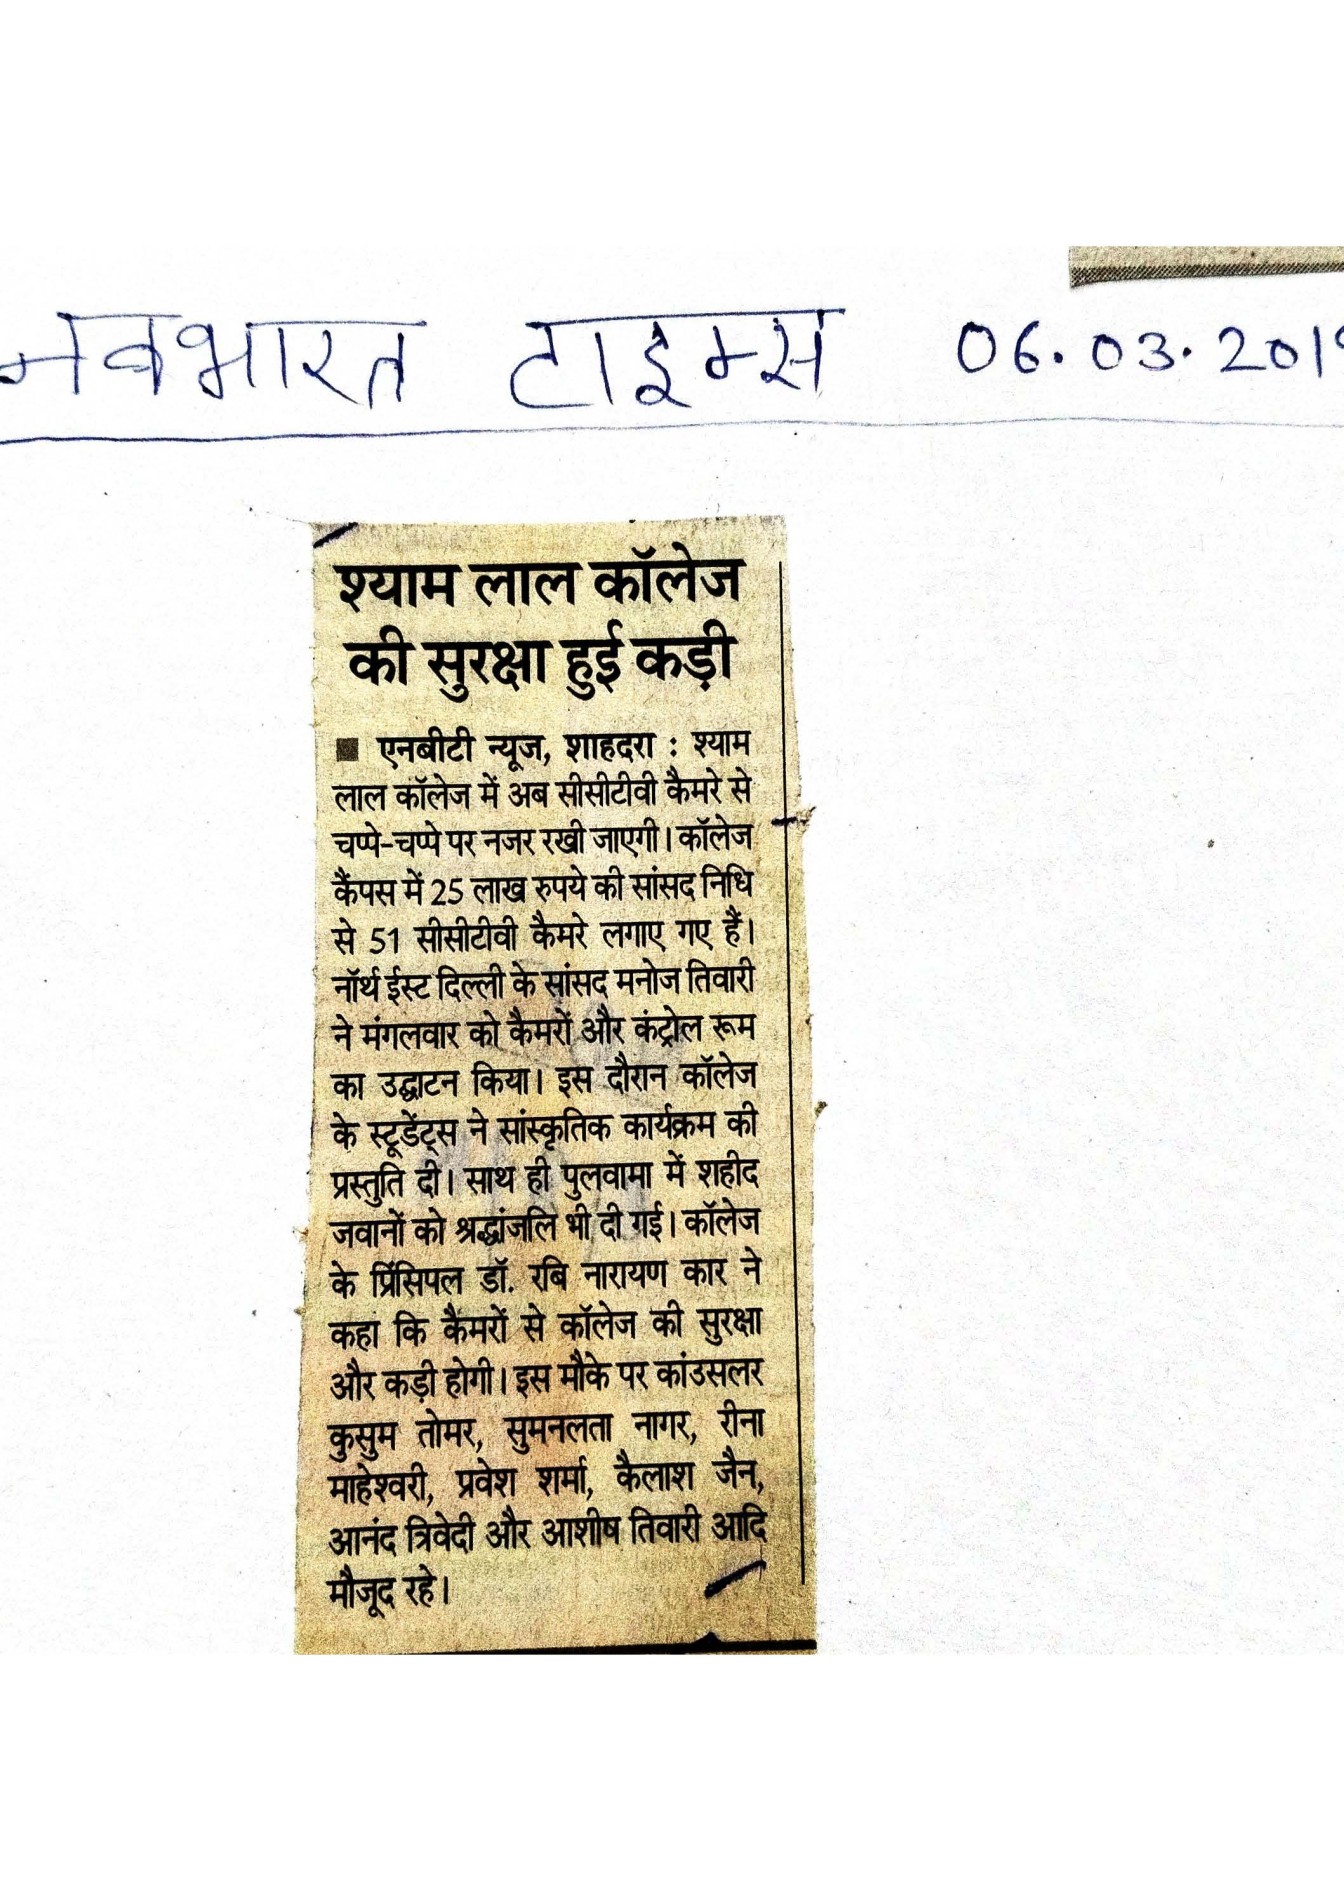 नवभारत टाइम्स 06.03.2019
श्याम लाल कॉलेज
की सुरक्षा हुई कड़ी
■ एनबीटी न्यूज, शाहदरा : श्याम
लाल कॉलेज में अब सीसीटीवी कैमरे से
चप्पे-चप्पे पर नजर रखी जाएगी। कॉलेज
कैंपस में 25 लाख रुपये की सांसद निधि
से 51 सीसीटीवी कैमरे लगाए गए हैं।
नॉर्थ ईस्ट दिल्ली के सांसद मनोज तिवारी
ने मंगलवार को कैमरों और कंट्रोल रूम
का उद्घाटन किया। इस दौरान कॉलेज
के स्टूडेंट्स ने सांस्कृतिक कार्यक्रम की
प्रस्तुति दी। साथ ही पुलवामा में शहीद
जवानों को श्रद्धांजलि भी दी गई। कॉलेज
के प्रिंसिपल डॉ. रबि नारायण कार ने
कहा कि कैमरों से कॉलेज की सुरक्षा
और कड़ी होगी। इस मौके पर कांउसलर
कुसुम तोमर, सुमनलता नागर, रीना
माहेश्वरी, प्रवेश शर्मा, कैलाश जैन,
आनंद त्रिवेदी और आशीष तिवारी आदि
मौजूद रहे।